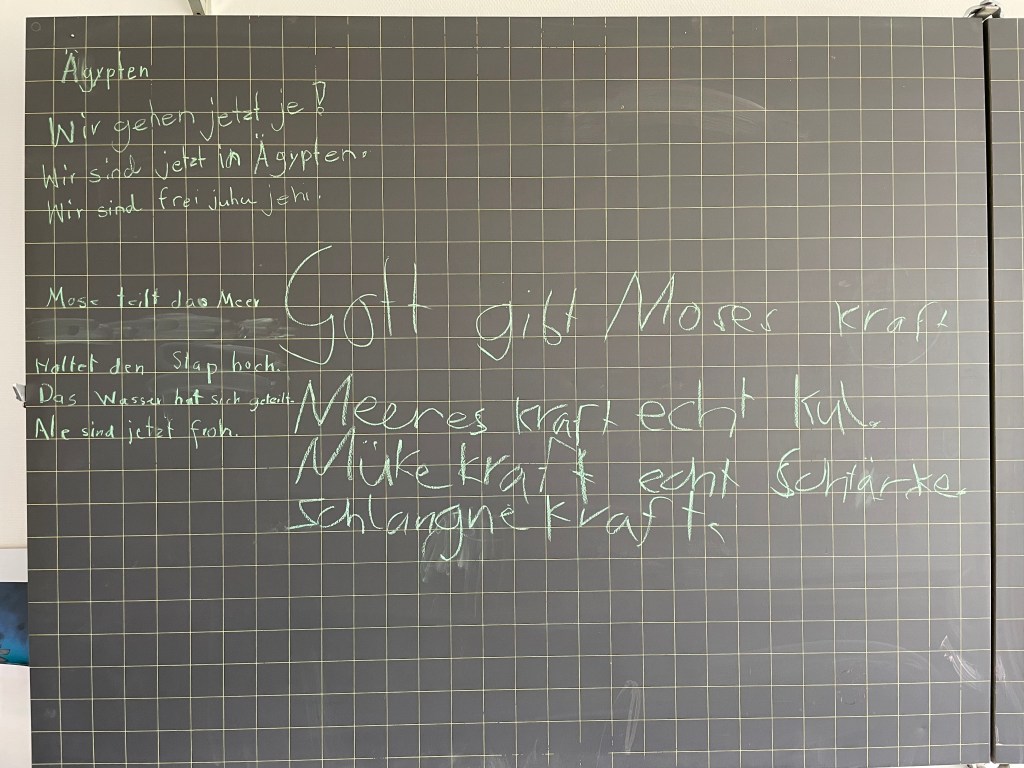 Ägypten
Wir gehen jetzt je!
Wir sind jetzt in Ägypten.
Wir sind frei juhu jehi.
Mose teilt das Meer
Haltet den Stap hoch.
Das Wasser hat sich geteilt.
Ale sind jetzt froh.
Gott gibt Moses kraft
Meeres kraft echt kul.
Müke kraft echt Schtärke.
schlangne kraft.